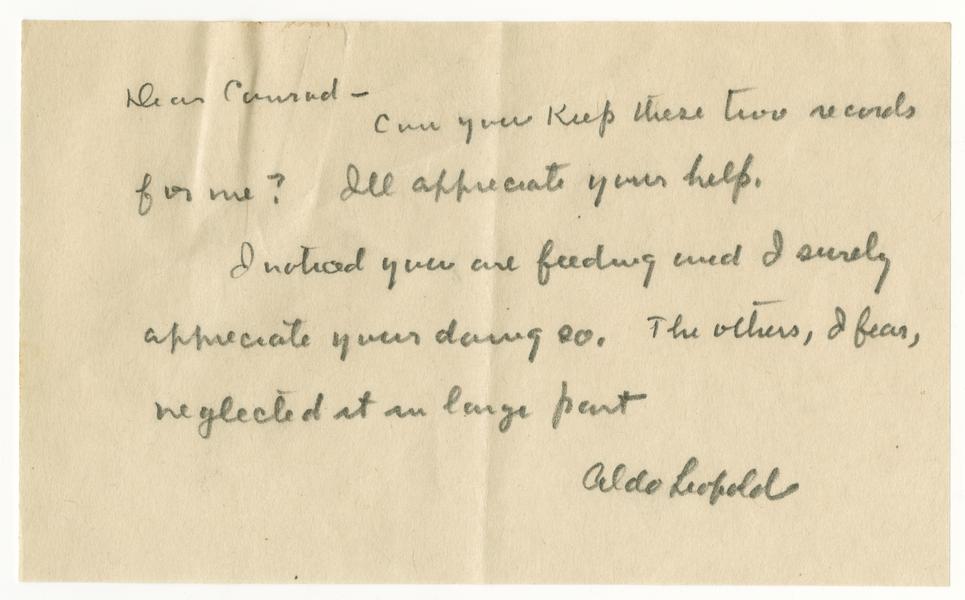 Dear Conrad –
Can you keep these two records
for me? I'll appreciate your help.
I noticed you are feeding and I surely
appreciate your doing so. The others, I fear,
neglected it in large part
Aldo Leopold